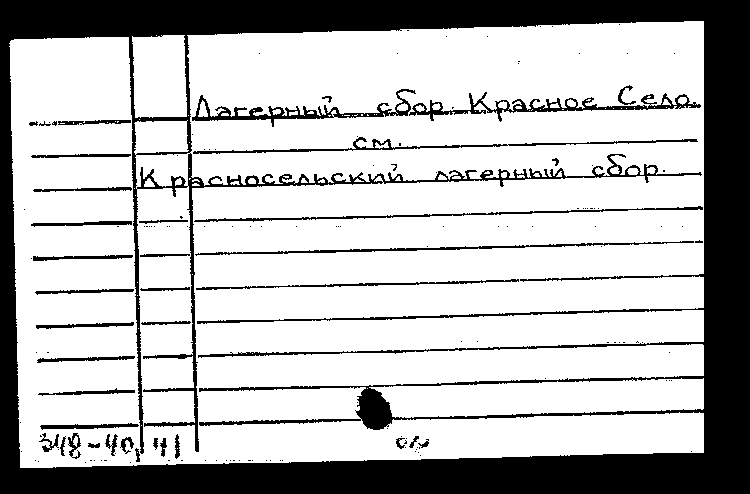 Лагерный сбор. Красное Село.
см.
Красносельский лагерный сбор.
348-40, 41